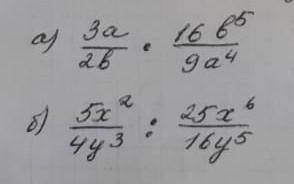 а) 3a/2b · 16b⁵/9a⁴
б) 5x²/4y³ : 25x⁶/16y⁵